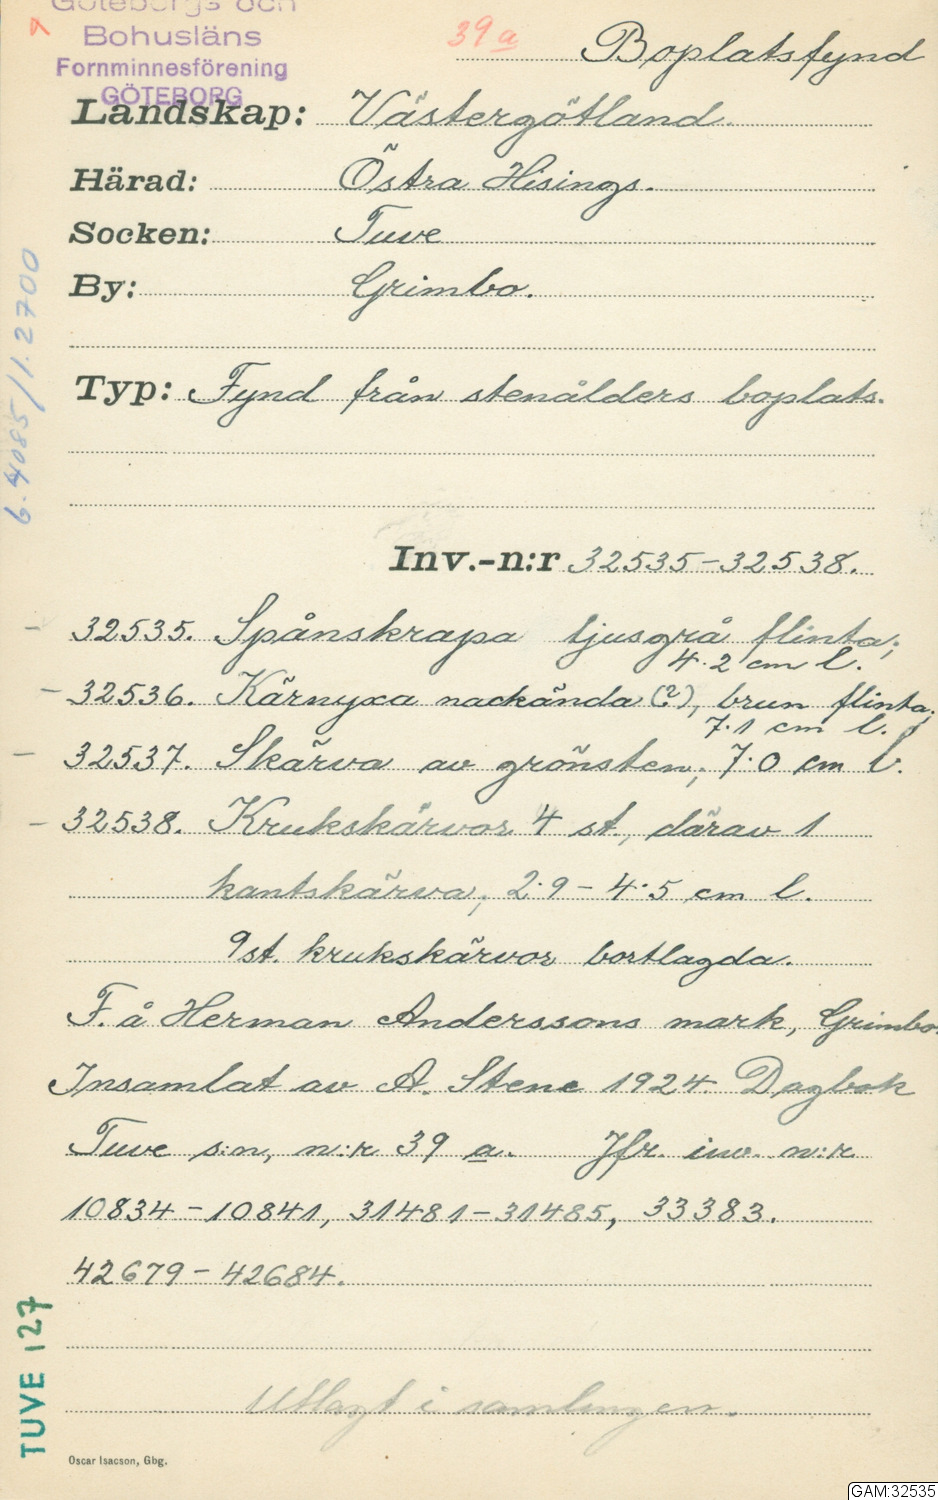 Göteborgs och
Bohusläns
Fornminnesförening
GÖTEBORG
39 a
Boplatsfynd
Landskap: Västergötland.
Härad: Östra Hisings.
Socken: Tuve
By: Grimbo.
6.4085/1.2700
Typ: Fynd från stenålders boplats.
Inv.-n:r 32535-32538.
- 32535. Spånskrapa ljusgrå flinta;
4.2 cm l.
- 32536. Kärnyxa nackända (?), brun flinta;
7.1 cm l.
- 32537. Skärva av grönsten; 7.0 cm l.
- 32538. Krukskärvor 4 st., därav 1
kantskärva; 2.9 - 4.5 cm l.
9 st. krukskärvor bortlagda.
F. å Herman Anderssons mark, Grimbo.
Insamlat av A. Stene 1924. Dagbok
Tuve s:n, n:r 39 a. Jfr. inv. n:r
10834-10841, 31481-31485, 33383.
42679-42684.
Utlagt i samlingen.
TUVE 127
Oscar Isacson, Gbg.
GAM:32535